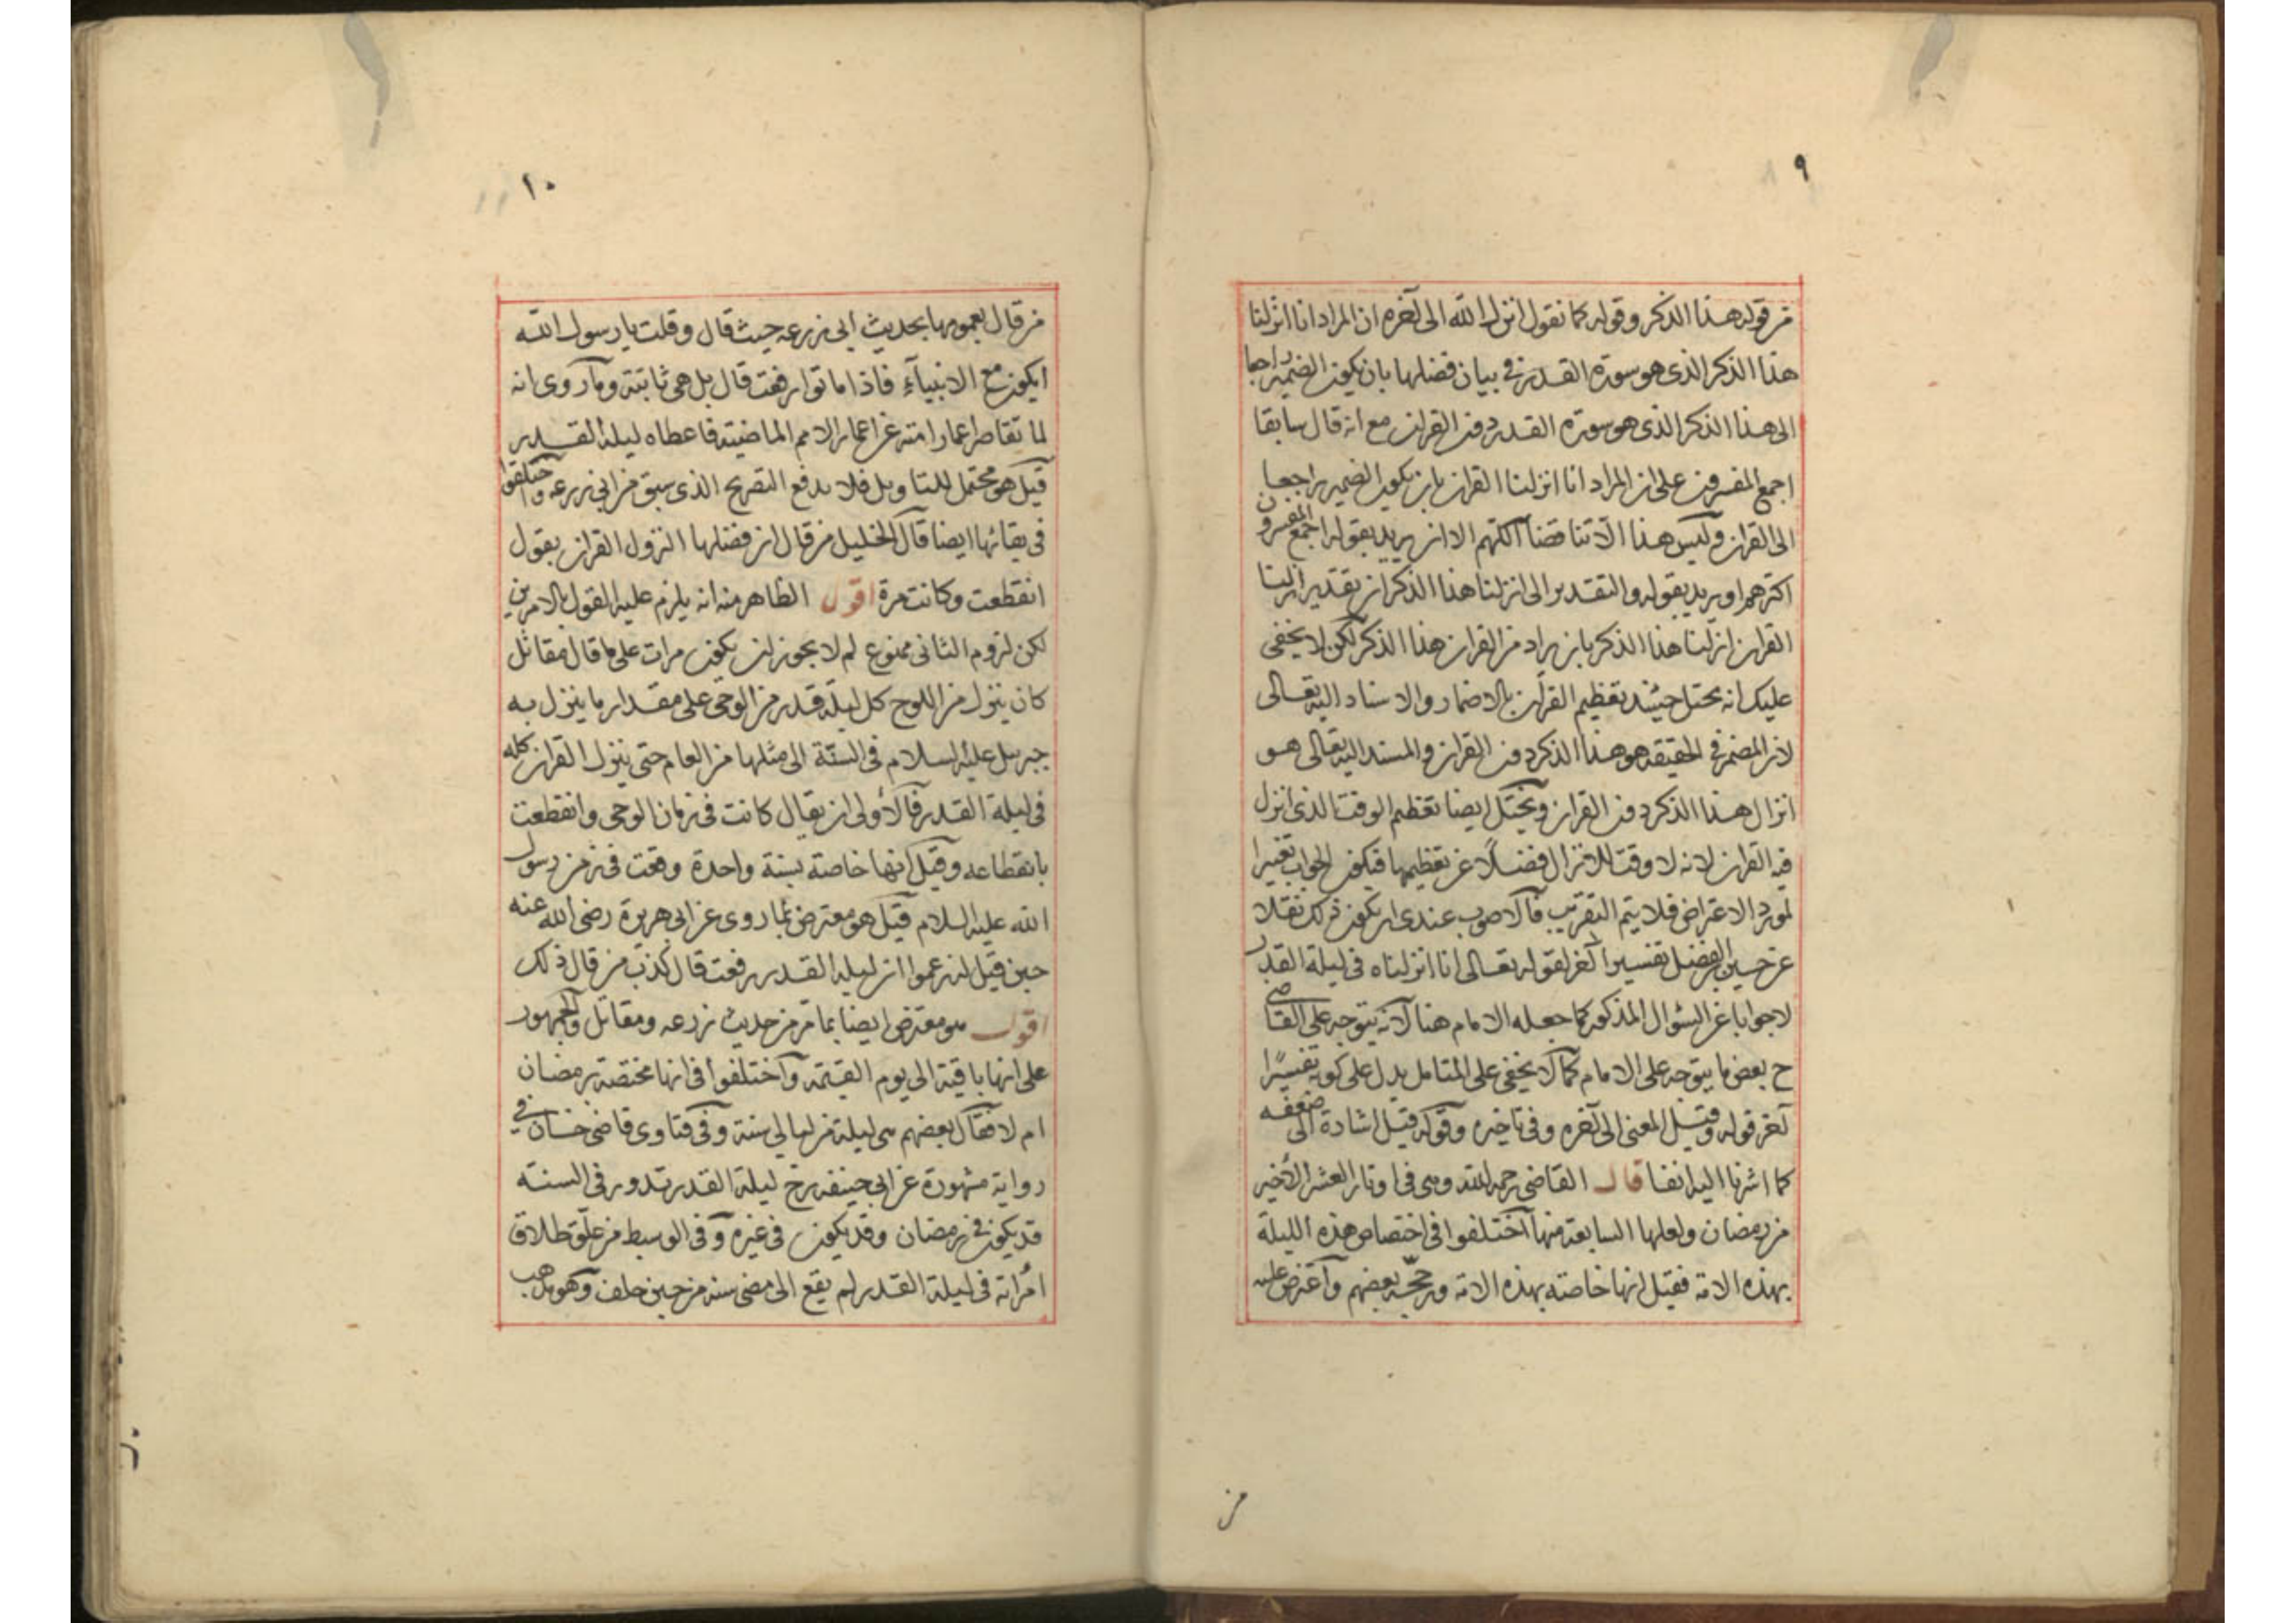 ٩
من قوله هذا الذكر وقوله كما نقول انزل الله الى آخره ان المراد انا انزلنا
هذا الذكر الذى هو سورة القدر فى بيان فضلها بان يكون الضمير راجعا
الى هذا الذكر الذى هو سورة القدر دون القران مع انه قال سابقا
اجمع المفسرون على ان المراد انا انزلنا القران بان يكون الضمير راجعا
الى القران وليس هذا الا تناقضا اللهم الا ان يريد بقوله اجمع المفسرون
اكثرهم او يريد بقوله والتقدير الى انزلنا هذا الذكر ان تقدير انزلنا
القران انزلنا هذا الذكر بان يراد من القران هذا الذكر لكن لا يخفى
عليك انه يحتمل حينئذ تعظيم القرآن بالاضمار والاسناد اليه تعالى
لان المضمر فى الحقيقة هو هذا الذكر دون القران والمسند اليه تعالى هو
انزال هذا الذكر دون القران ويحتمل ايضا تعظيم الوقت الذى انزل
فيه القران لانه لا وقت للانزال فضلًا عن تعظيمها فيكون الجواب تغييرا
لمورد الاعتراض فلا يتم التقريب فالاصوب عندى ان يكون ذلك نقلا
عن حسين بن الفضل تفسيرا آخر لقوله تعالى انا انزلناه فى ليلة القدر
لا جوابا عن السؤال المذكور كما جعله الامام هنا لانه يتوجه على القاضى
ح بعض ما يتوجه على الامام كما لا يخفى على المتامل يدل على كونه تفسيرًا
آخر قوله وقيل المعنى الى آخره وفى تاخيره وقوله قيل اشارة الى ضعفه
كما اشرنا اليه انفا قال القاضى رحمه الله وهى فى اوتار العشر الأخير
من رمضان ولعلها السابعة منها اختلفوا فى اختصاص هذه الليلة
بهذه الامة فقيل انها خاصة بهذه الامة ورجحه بعضهم واعترض عليه
من
١٠
من قال بعمومها بحديث ابى زرعه حيث قال وقلت يا رسول الله
ايكون مع الانبيآء فاذا ماتوا رفعت قال بل هى ثابتة وما روى انه
لما تقاصر اعمار امته عن اعمار الامم الماضية فاعطاه ليلة القدر
قيل هو محتمل للتاويل فلا يدفع التصريح الذى سبق من ابى زرعه واختلفوا
فى بقائها ايضا قال الخليل من قال ان فضلها النزول القران يقول
انقطعت وكانت مرة اقول الظاهر منه انه يلزم عليه القول بالامرين
لكن لزوم الثانى ممنوع لم لا يجوز ان يكون مرات على ما قال مقاتل
كان ينزل من اللوح كل ليلة قدر من الوحى على مقدار ما ينزل به
جبريل عليه السلام فى السنة الى مثلها من العام حتى ينزل القران كله
فى ليلة القدر فالأولى ان يقال كانت فى زمان الوحى وانقطعت
بانقطاعه وقيل انها خاصة بسنة واحدة وقعت فى زمن رسول
الله عليه السلام قيل هو معترض بما روى عن ابى هريرة رضى الله عنه
حين قيل له زعموا ان ليلة القدر رفعت قال كذب من قال ذلك
اقول هو معترض ايضا بما مر من حديث زرعه ومقاتل والجمهور
على انها باقية الى يوم القيمة واختلفوا فى انها مختصة برمضان
ام لا فقال بعضهم هى ليلة من ليالى سنة وفى فتاوى قاضى خان فى
رواية مشهورة عن ابى حنيفه رح ليلة القدر تدور فى السنة
قد يكون فى رمضان وقد يكون فى غيره وفى الوسيط من علق طلاق
امرأته فى ليلة القدر لم يقع الى مضى سنة من حين حلف وهو مذهب